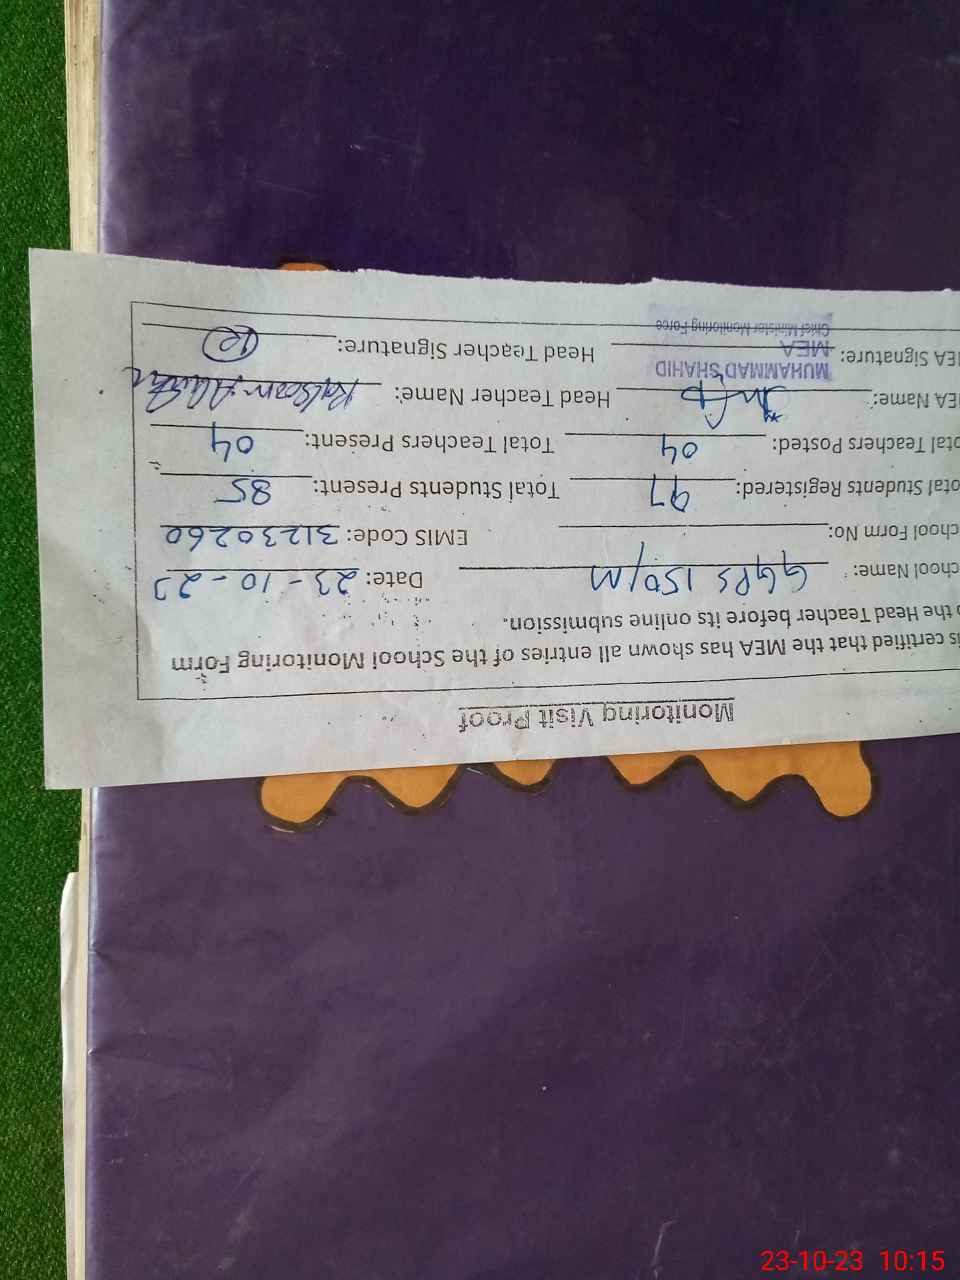 Monitoring Visit Proof
is certified that the MEA has shown all entries of the School Monitoring Form
the Head Teacher before its online submission.
chool Name: GGPS 150/M Date: 23-10-23
chool Form No: EMIS Code: 31230260
otal Students Registered: 97 Total Students Present: 85
otal Teachers Posted: 04 Total Teachers Present: 04
EA Name: Head Teacher Name:
MUHAMMAD SHAHID
EA Signature: MEA Head Teacher Signature:
Chief Minister Monitoring Force
23-10-23 10:15